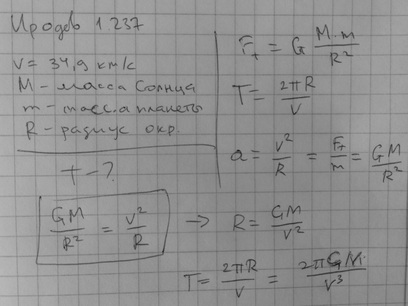 Иродов 1.237
v = 34,9 км/с
M – масса Солнца
m – масса планеты
R – радиус окр.
T – ?
F_т = G M·m / R²
T = 2πR / v
a = v² / R = F_т / m = GM / R²
GM / R² = v² / R → R = GM / v²
T = 2πR / v = 2πGM / v³